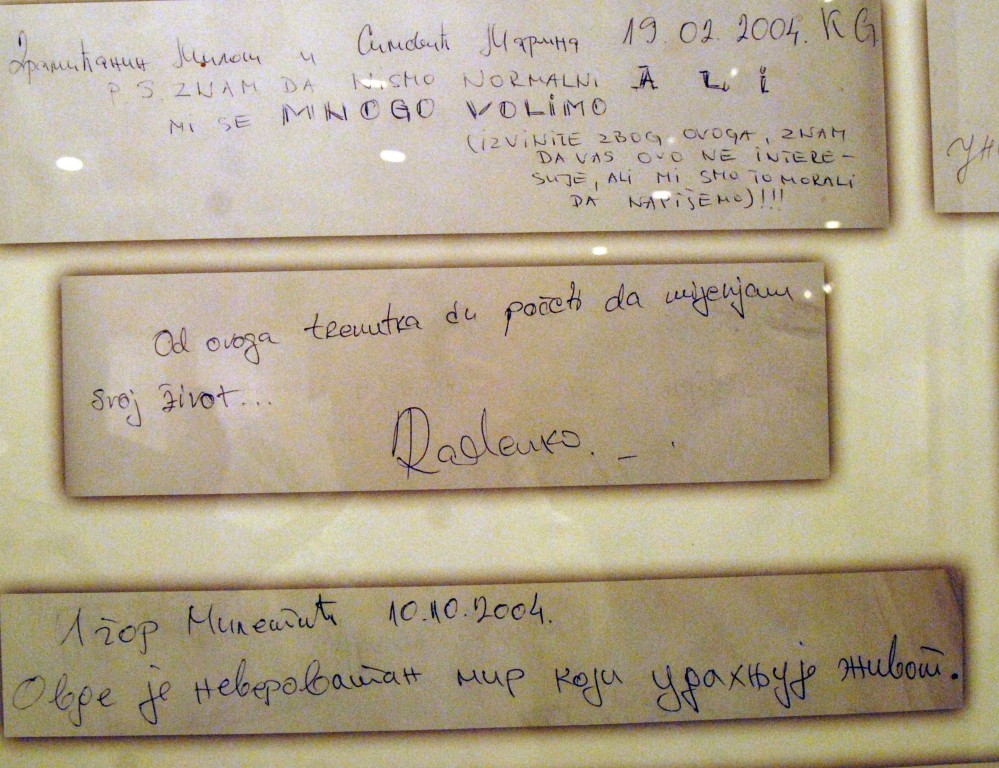 Милош и Симовић Марина 19.02.2004. KG
P.S. ZNAM DA NISMO NORMALNI ALI
MI SE MNOGO VOLIMO
(IZVINITE ZBOG OVOGA, ZNAM
DA VAS OVO NE INTERE-
SUJE, ALI MI SMO TO MORALI
DA NAPIŠEMO)!!!
Od ovoga trenutka ću početi da mijenjam
svoj život...
Radenko.
Игор Милетић 10.10.2004.
Овде је невероватан мир који удахњује живот.